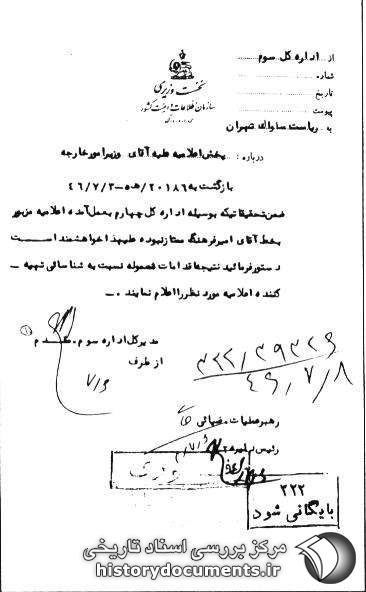 از اداره کل سوم
شماره
تاریخ
پیوست
به ریاست ساواک تهران
نخست وزیری
سازمان اطلاعات و امنیت کشور
درباره : پخش اعلامیه علیه آقای وزیر امور خارجه
بازگشت به ۲۰۱۸۶/ه۵-۴۶/۷/۳
ضمن تحقیقاتیکه بوسیله اداره کل چهارم بعمل آمده اعلامیه مزبور
بخط آقای امیر فرهنگ ممتاز نبوده علیهذا خواهشمند است
دستور فرمائید نتیجه اقدامات معموله نسبت به شناسائی تهیه -
کننده اعلامیه مورد نظر را اعلام نمایند . -
مدیر کل اداره سوم . مقدم
از طرف
۷/۶
۳۲۲/۳۹۳۲۶
۴۶/۷/۸
رهبر عملیات
۳۲۲
بایگانی شود
مرکز بررسی اسناد تاریخی
historydocuments.ir